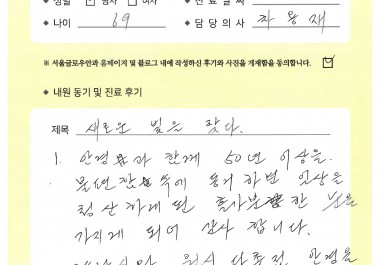 성별 남자 여자
진료날짜
나이 69
담당의사 차왕재
※ 서울글로우안과 홈페이지 및 블로그 내에 작성하신 후기와 사진을 게재함을 동의합니다.
내원 동기 및 진료 후기
제목 새로운 빛을 찾다.
1. 안경과 함께 50년 이상을
속에 동거 하면 일상을
청산하게 된 한 눈을
가지게 되어 감사 합니다.
안경을